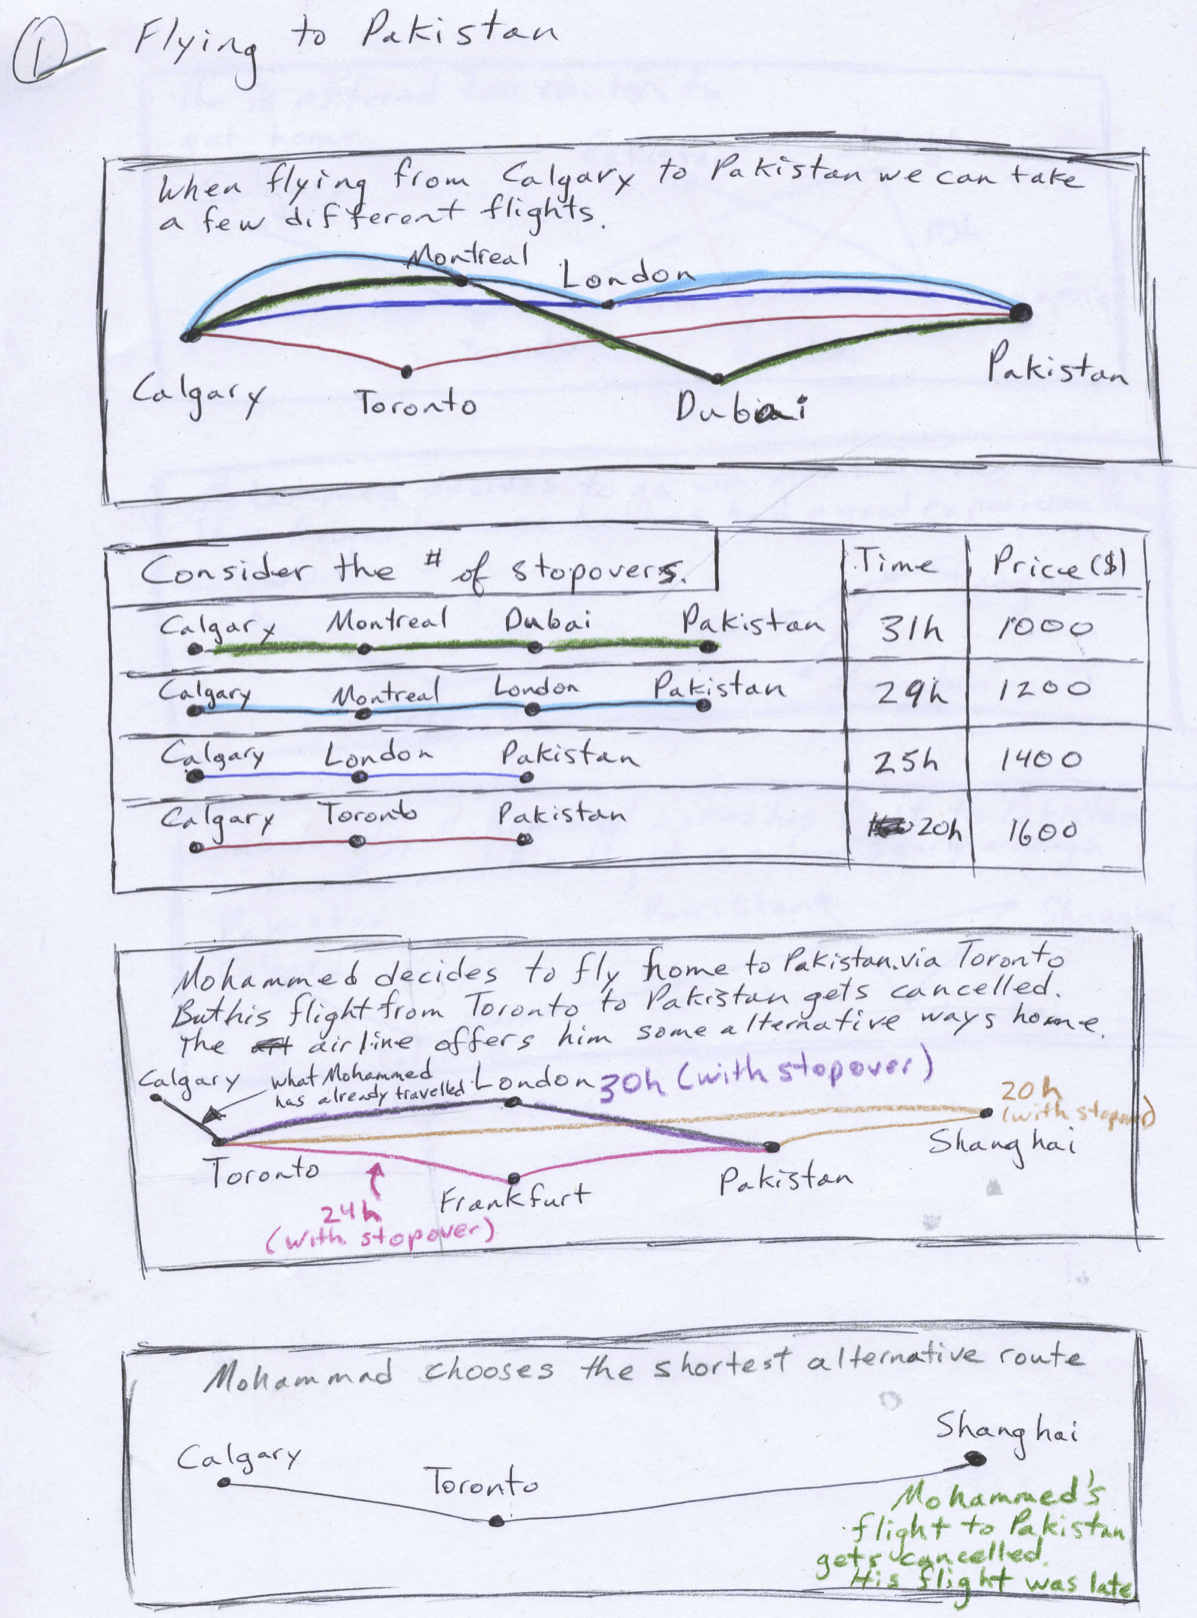 1 Flying to Pakistan
When flying from Calgary to Pakistan we can take
a few different flights.
Montreal
London
Calgary
Toronto
Dubai
Pakistan
Consider the # of stopovers. Time Price ($)
Calgary Montreal Dubai Pakistan 31h 1000
Calgary Montreal London Pakistan 29h 1200
Calgary London Pakistan 25h 1400
Calgary Toronto Pakistan 20h 1600
Mohammed decides to fly home to Pakistan.via Toronto
But his flight from Toronto to Pakistan gets cancelled.
The airline offers him some alternative ways home.
Calgary
what Mohammed
has already travelled
London
30h (with stopover)
20h
(with stopover)
Shanghai
Toronto
Frankfurt
Pakistan
24h
(with stopover)
Mohammad chooses the shortest alternative route
Calgary
Toronto
Shanghai
Mohammed's
flight to Pakistan
gets cancelled.
His flight was late